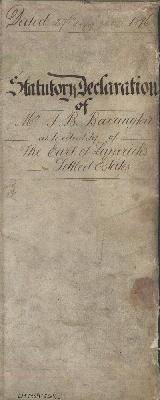 Dated 27th 18
Statutory Declaration
of
Mr J. B. Barrington
as to identity of
The Earl of Limerick's
Settled Estates